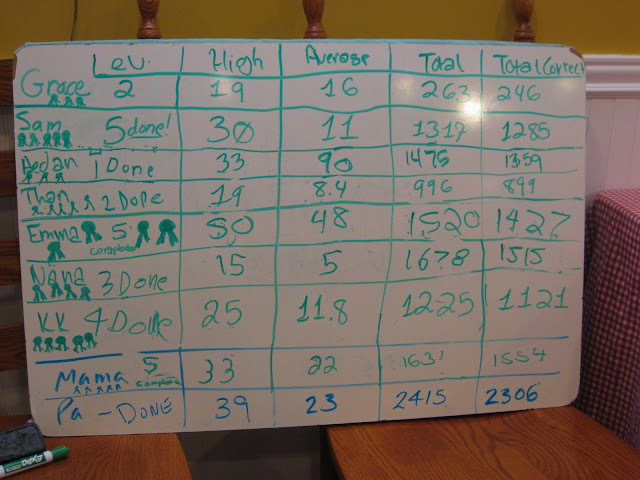 Lev. High Average Total Total Correct
Grace 2 19 16 263 246
Sam 5 done! 30 11 1317 1285
Aedan 1 Done 33 90 1475 1359
Than 2 Done 19 8.4 996 899
Emma 5 50 48 1520 1427
complete
Nana 3 Done 15 5 1678 1515
KK 4 Done 25 11.8 1225 1121
Mama 5 33 22 1631 1554
complete
Pa - DONE 39 23 2415 2306
EXPO